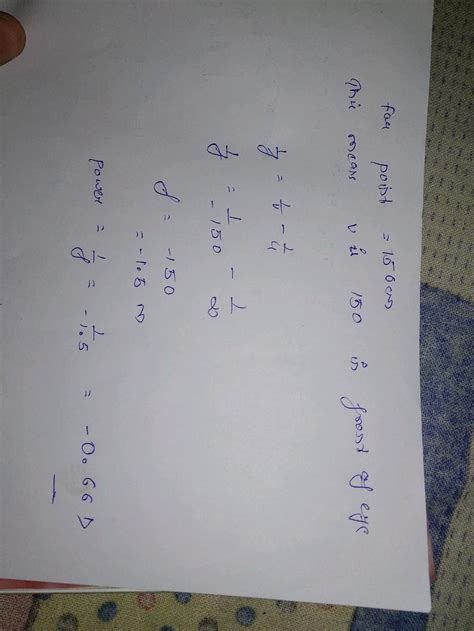 far point = 150cm
This means v is 150 in front of eye
1/f = 1/v - 1/u
1/f = 1/-150 - 1/∞
f = -150
= -1.5 m
Power = 1/f = -1/1.5 = -0.66 D